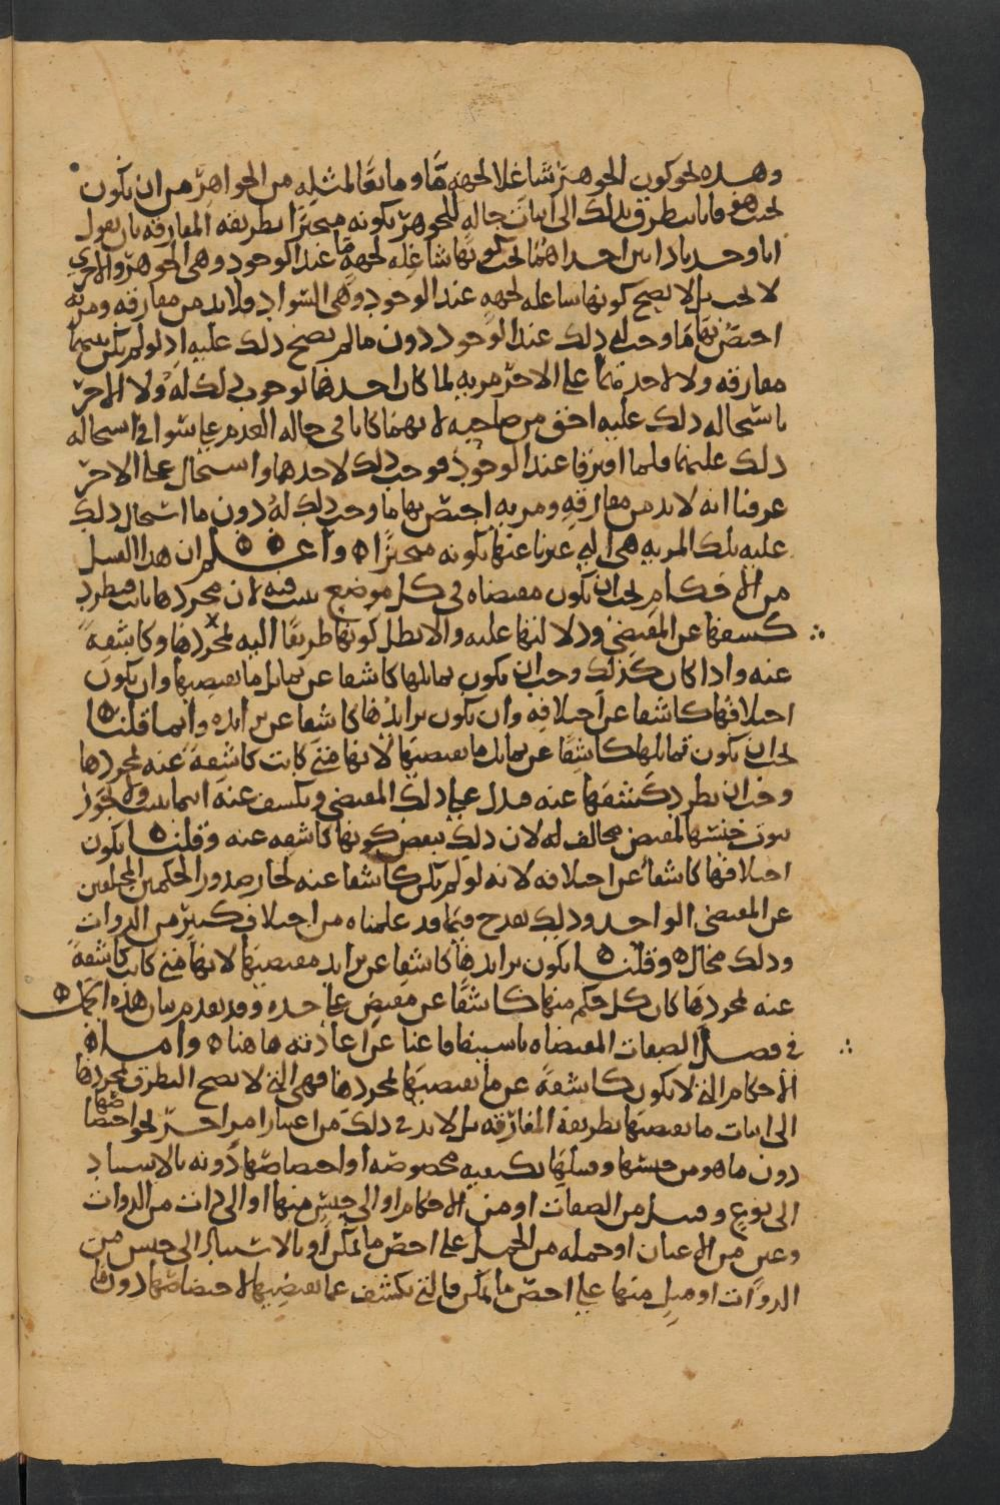 وهذه نحو كون الجوهر شاغلا لجهة مّا ومانعًا لمثله من الجواهر من ان يكون
بحيث هو فانا نتطرق بذلك الى اثبات حاله للجوهر بكونه متحيزًا بطريقه المفارقه بان نقول
انا وجدنا ذاتين احداهما يجب كونها شاغله لجهةٍ مّا عند الوجود وهى الجوهر والاخرى
لا يجب بل لا يصح كونها شاغله لجهه عند الوجود وهى السواد ولا بد من مفارقه ومزيّه
اختصّ بها ما وجب له ذلك عند الوجود دون ما لم يصح ذلك عليه اذ لو لم يكن بينهما
مفارقه ولا لاحدهما على الاخرّ مزيه لما كان احدهما بوجوب ذلك له ولا الاخرّ
باستحاله ذلك عليه احق من صاحبه لانهما كانا فى حاله العدم على سَوا فى استحاله
ذلك عليهما فلما افترقا عند الوجود فوجب ذلك لاحدهما واستحال على الاخرّ
عرفنا انه لا بد من مفارقهٍ ومزيه اختصّ بها ما وجب ذلك له دون ما استحال ذلك
عليه تلك المزيه هى التى عبرنا عنها بكونه متحيزًا ه واعلم ان هذا القبيل
من الاحكام يجب ان يكون مقتضاه فى كل موضع ثبت فيه لان مجردها ثابت فيطرد
كشفها عن المقتضِى ودلالتها عليه والا بطل كونها طريقًا اليه لمجردها وكاشفةً
عنه واذا كان كذلك وجب ان يكون تماثلها كاشفا عن تماثل ما يقتضيها وان يكون
اختلافها كاشفا عن اختلافه وان يكون تزايدُها كاشفا عن تزايده وانما قلنا ه
يجب ان يكون تماثلها كاشِفًا عن تماثل ما يقتضيها لانها متى كانت كاشفة عنه لمجردها
وجب ان يطرد كشفها عنه فيدل على ذلك المقتضِى ويكشف عنه اينما ثبت ولا يجوز
ثبوت جنسها لمقتضٍ مخالف له لان ذلك ينقض كونها كاشفه عنه وقلنا ه يكون
اختلافها كاشفًا عن اختلافه لانه لو لم يكن كاشفا عنه لجاز صدور الحكمين المختلفين
عن المقتضى الواحد وذلك يقدح فيما قد علمناه من اختلاف كثير من الذوات
وذلك محال ه وقلنا ه يكون تزايدها كاشِفا عن تزايد مقتضيها لانها متى كانت كاشفةً
عنه لمجردها كان كل حكم منها كاشفًا عن مقتضٍ على حده وقد تقدم بيان هذه الجمله
فى فصل الصفات المقتضاه باسبغ ما عنا عن اعادته هاهنا ه واما
الاحكام التى لا تكون كاشفةً عن ما يقتضيها لمجردها فهى التى لا يصح التطرق بمجردها
الى اثبات ما يقتضيها بطريقة المفارقه بل لا بد فى ذلك من اعتبار امر اخرّ نحو اختصاصها
دون ما هو من جنسها وقبيلها بكيفيه مخصوصه او اختصاصها دونه بالاستناد
الى نوع وقبيل من الصفات او من الاحكام او الى جنسٍ منها او الى ذات من الذوات
وعين من الاعيان او جمله من الجمل على اخصّ ما يمكن او بالاستناد الى جنس من
الذوات او قبيلٍ منها على اخصّ ما يمكن فالتى تكشف عما يقتضِيها لاختصاصها دون ما